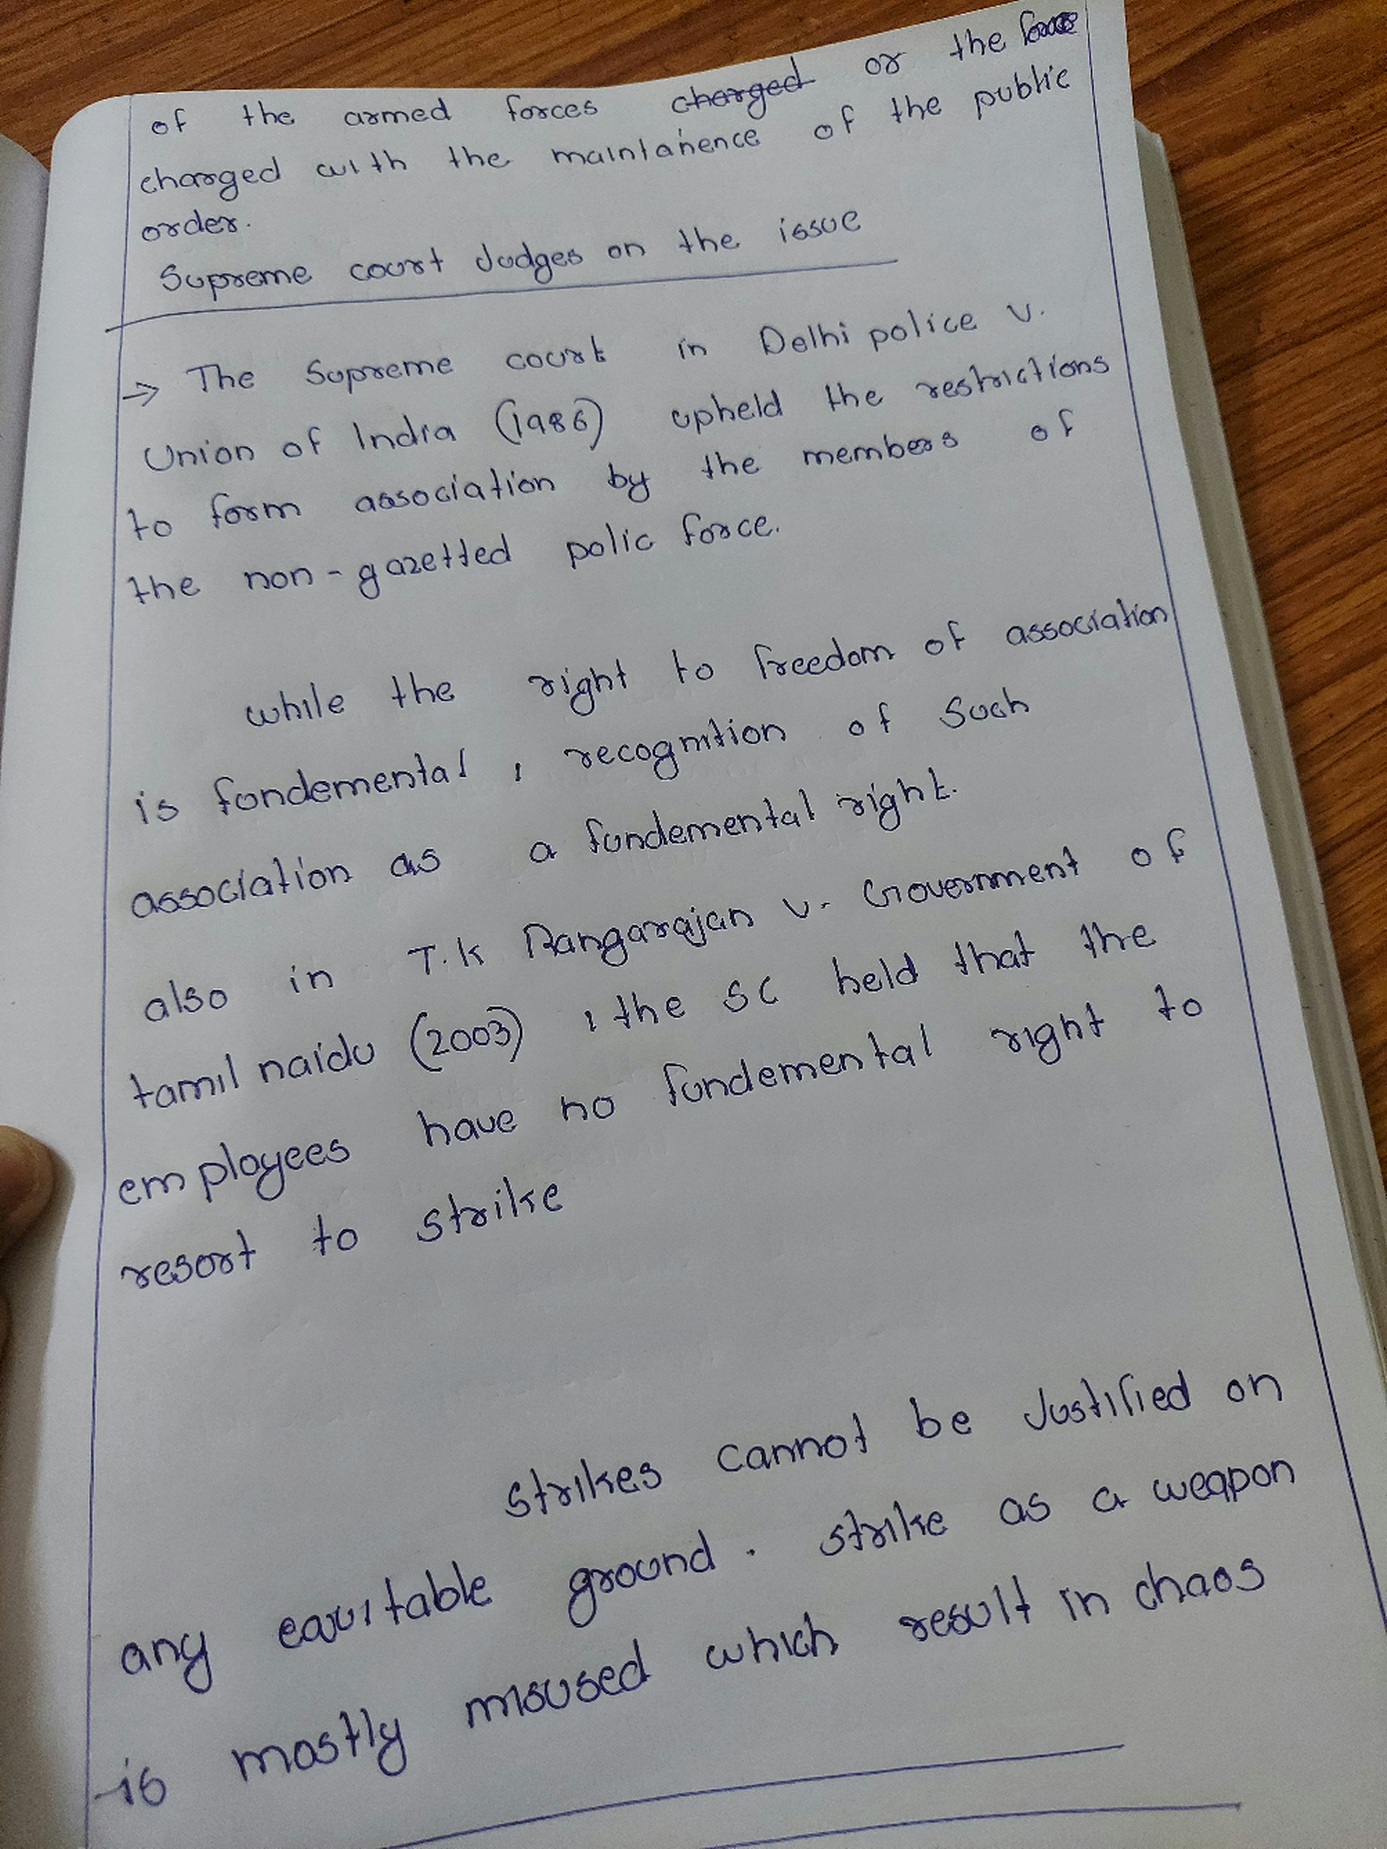 of the armed forces charged or the force
charged with the maintanence of the public
order.
Supreme court Judges on the issue
→ The Supreme court in Delhi police v.
Union of India (1986) upheld the restrictions
to form association by the members of
the non-gazetted polic force.
while the right to freedom of association
is fondemental, recognition of such
association as a fundemental right.
also in T.K Rangarajan v. Government of
tamil naidu (2003), the SC held that the
employees have no fundemental right to
resort to strike
strikes cannot be Justified on
any equitable ground. strike as a weapon
is mostly misused which result in chaos